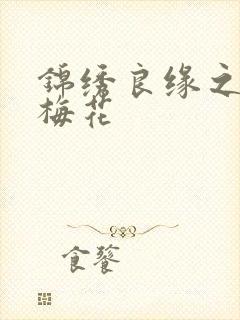 锦绣良缘之
梅花
食餮